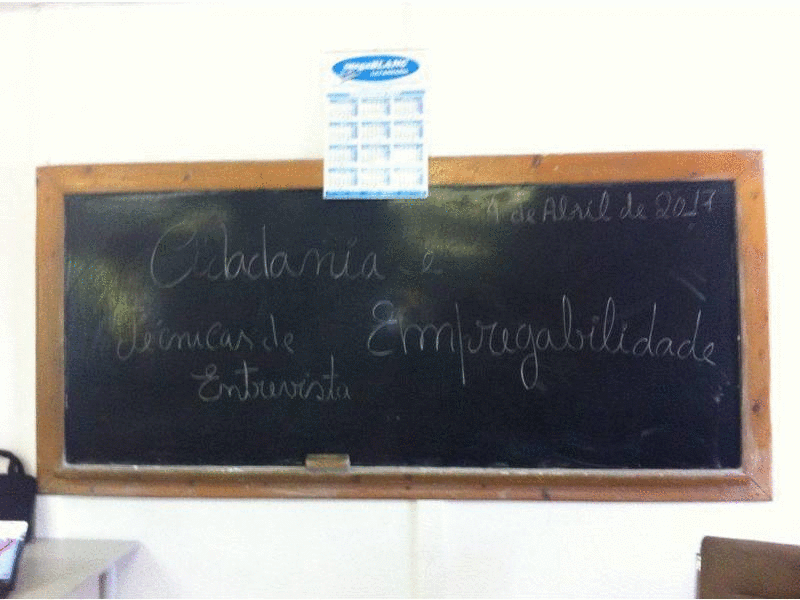 4 de Abril de 2017
Cidadania e
Empregabilidade
Técnicas de
Entrevista